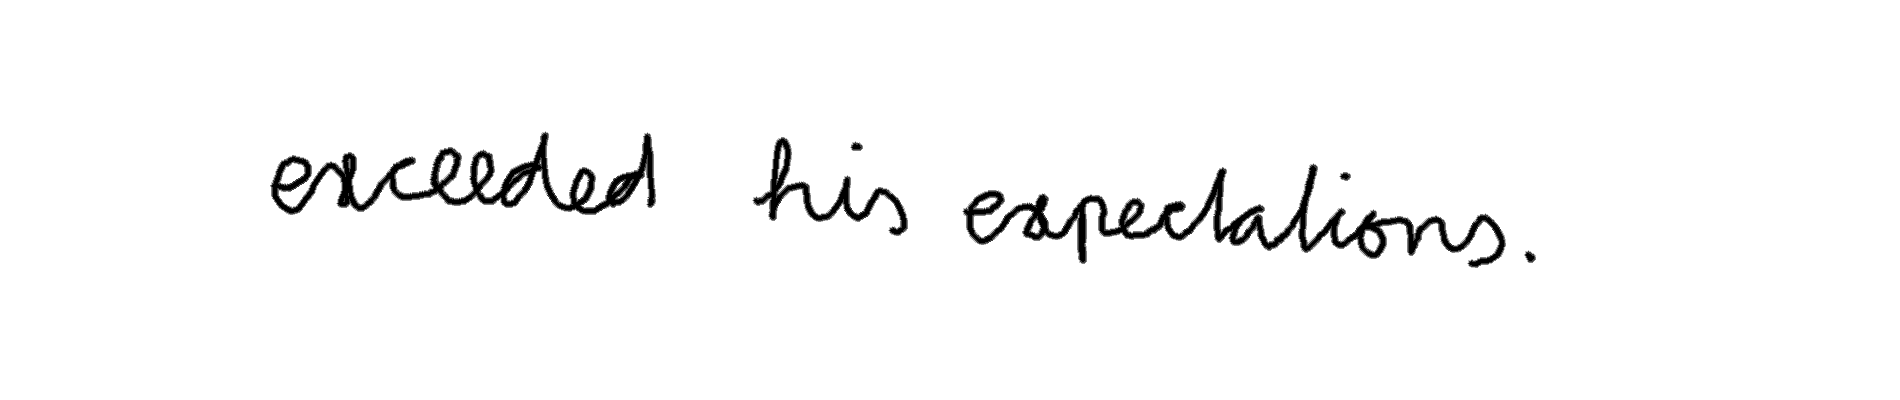 exceeded his expectations.